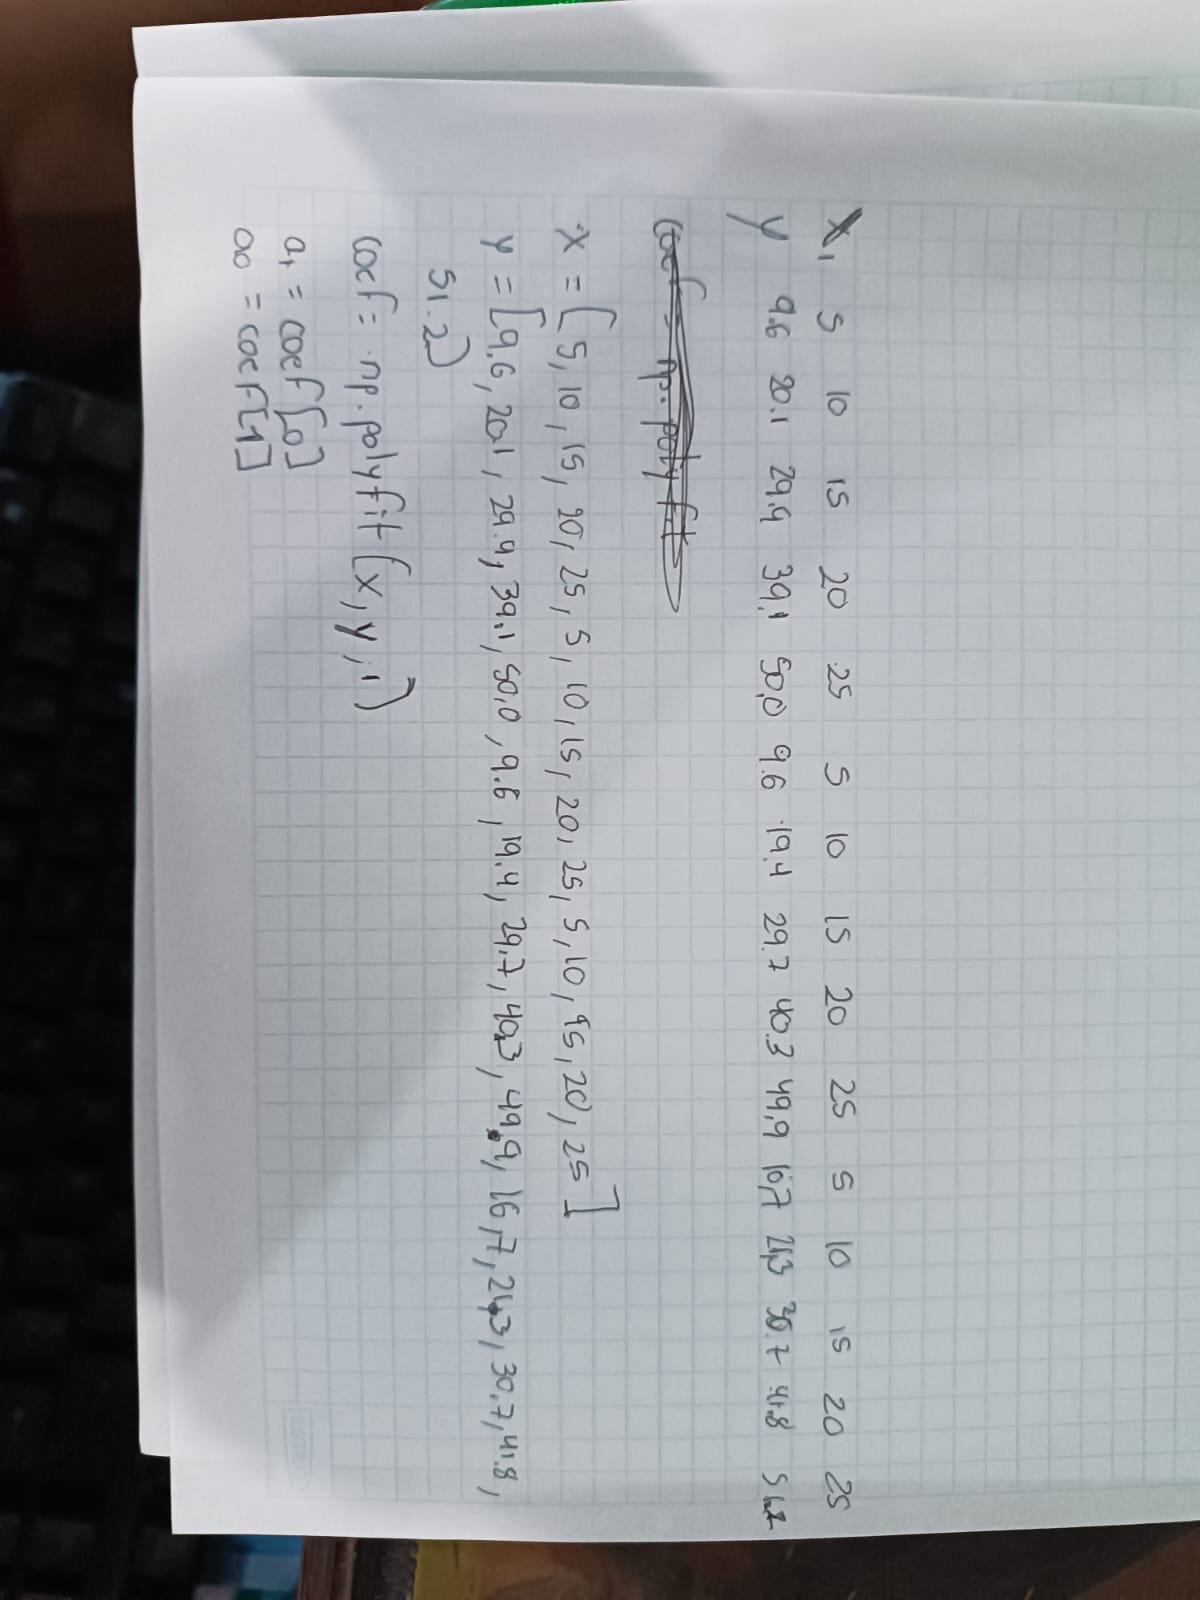 X, 5 10 15 20 25 5 10 15 20 25 5 10 15 20 25
y 9.6 20.1 29.9 39.1 50,0 9.6 19,4 29.7 40.3 49,9 10,7 21,3 30.7 41.8 51.2
Coef = np.polyfit
X = [5, 10, 15, 20, 25, 5, 10, 15, 20, 25, 5, 10, 15, 20, 25]
Y = [9.6, 20.1, 29.9, 39.1, 50,0, 9.6, 19.4, 29.7, 40.3, 49.9, 16,7, 21.3, 30.7, 41.8,
51.2)
Coef = np.polyfit(x, y, 1)
a1 = coef[0]
a0 = coef[1]